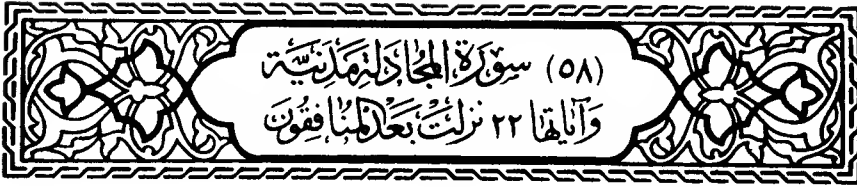 (٥٨) سُورَةُ المجَادَلَةِ مَدَنِيَّة
وَآيَاتُهَا ٢٢ نَزَلَتْ بَعْدَ المُنَافِقُونَ